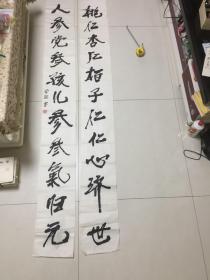 桃仁杏仁柏子仁仁心济世
人参党参孩儿参参氣归元